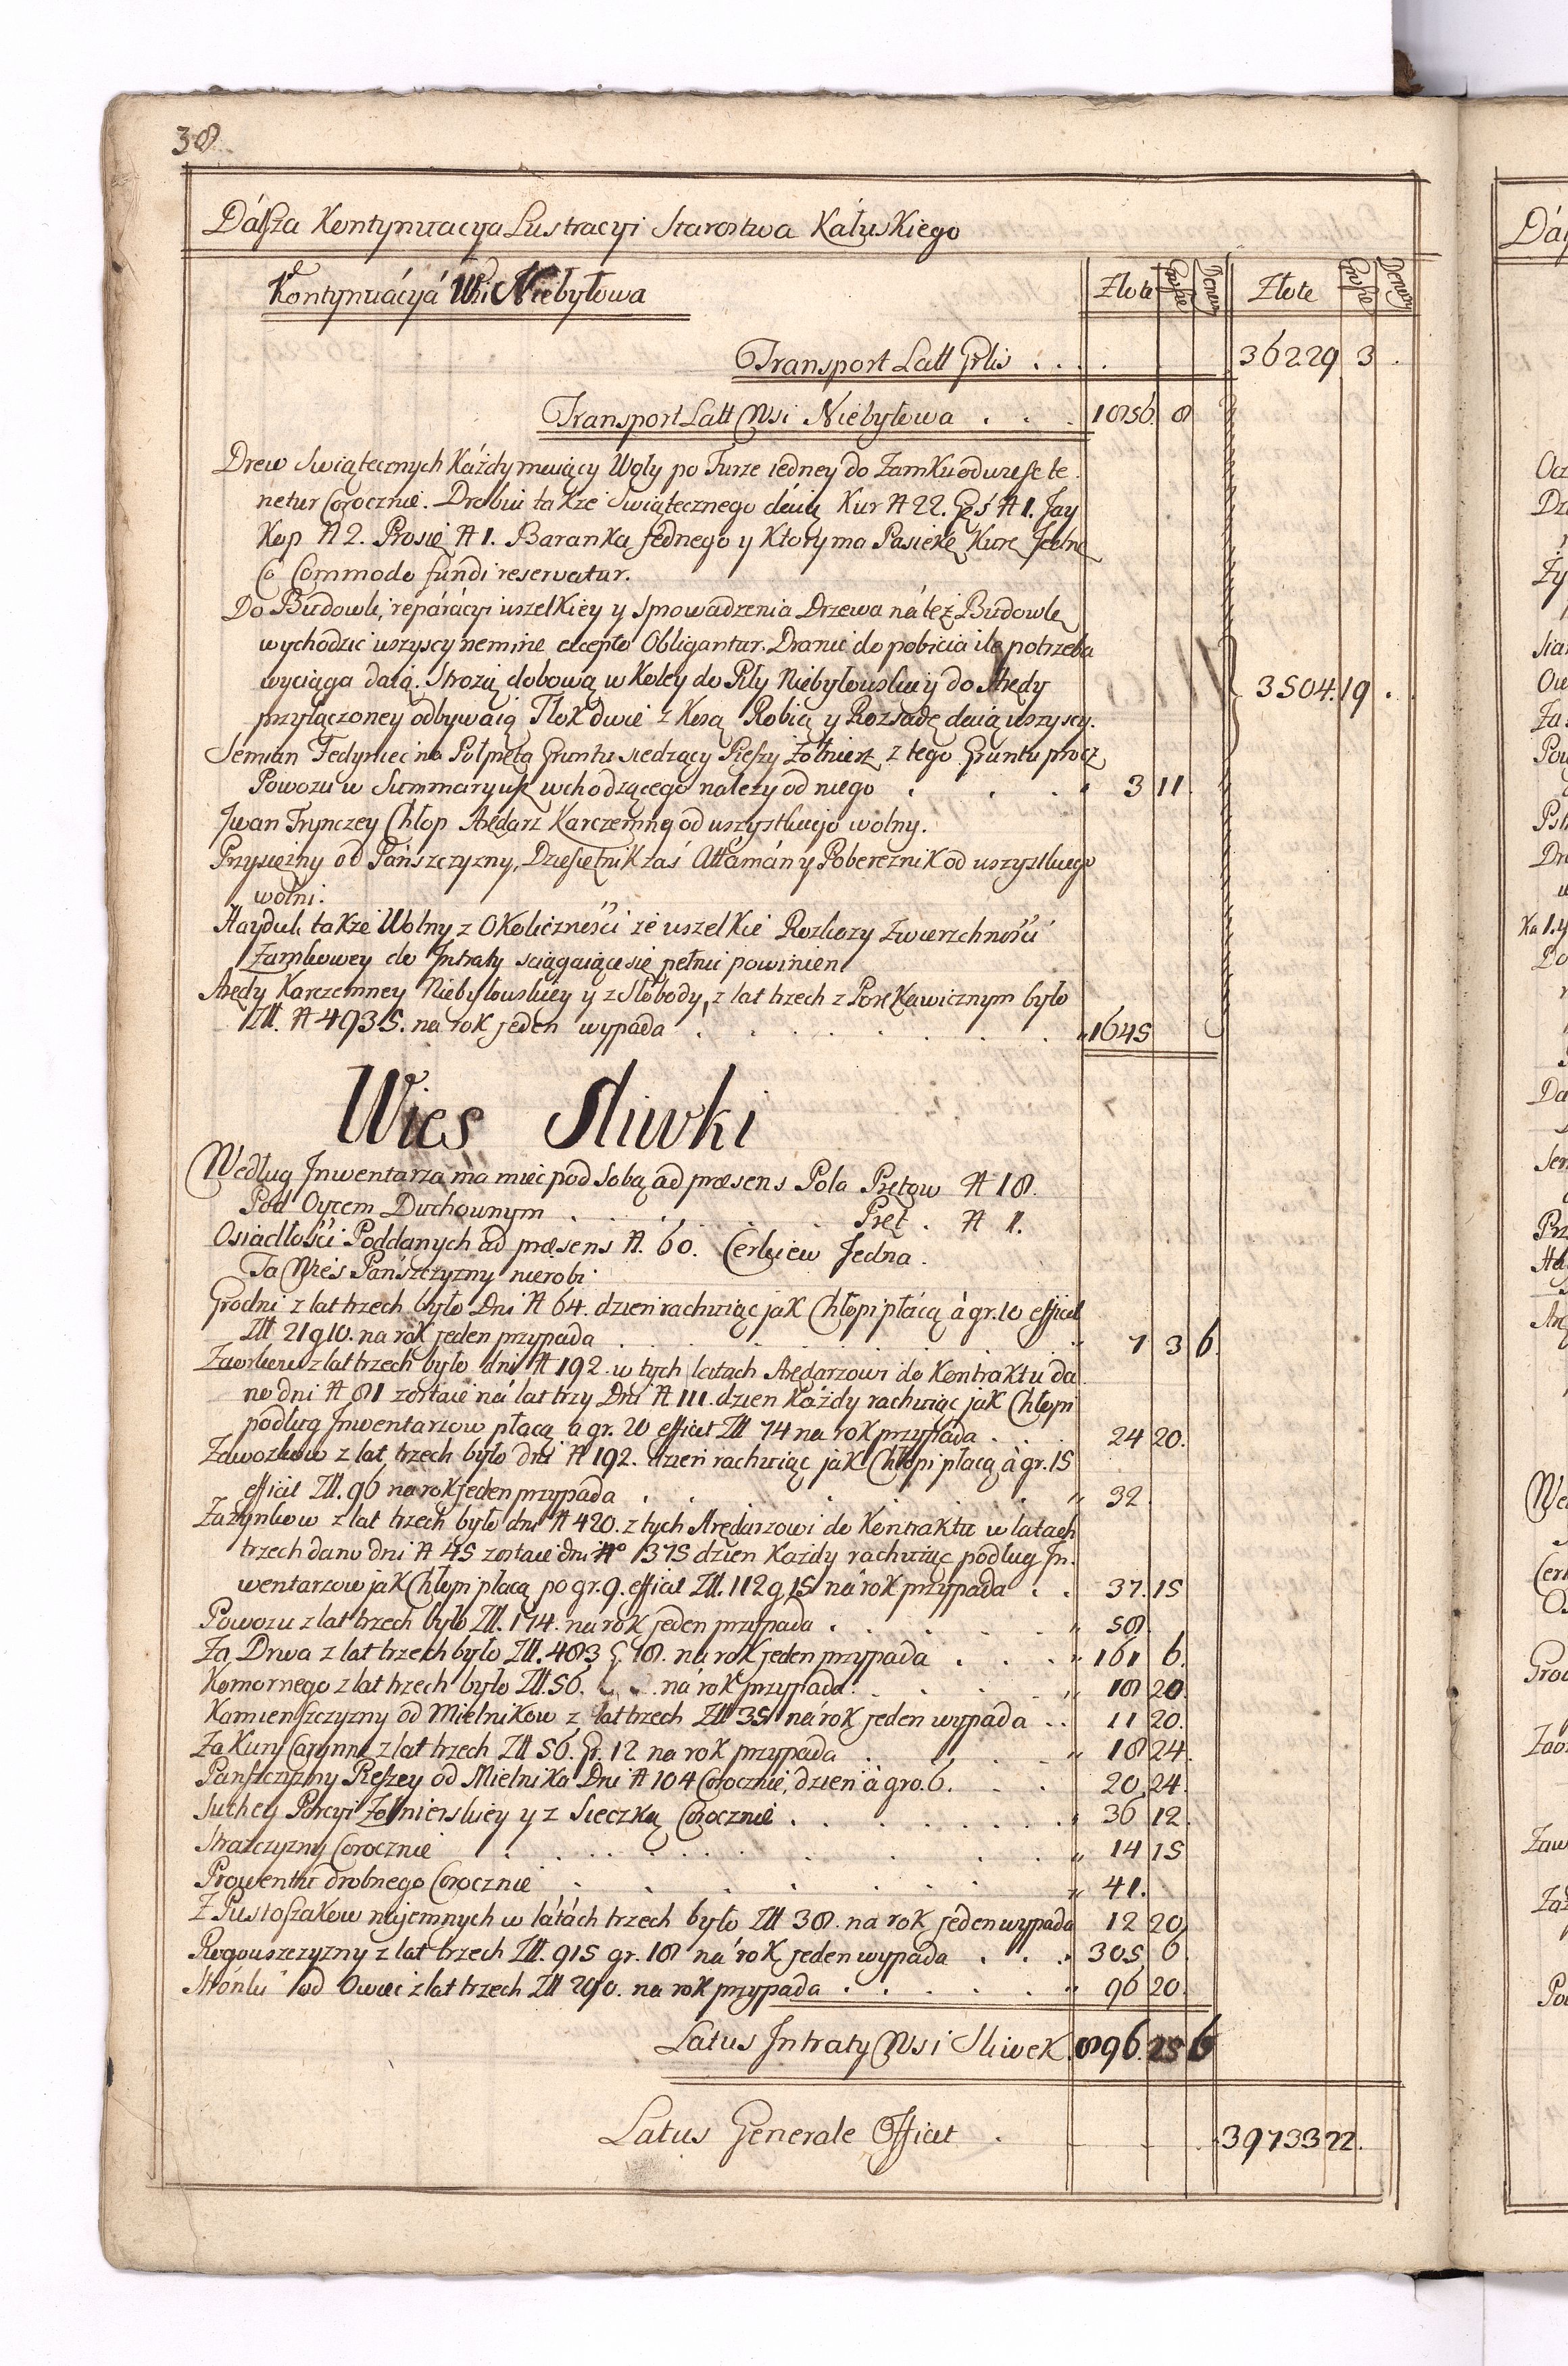 38
Dálsza Kontynuacya Lustracyi Starostwa Káłuskiego
Kontynuácyá Wsi Niebyłowa
Złote Grosze Denary Złote Grosze Denary
Transport Latt Grlis . . . 36229 3 .
Transport Latt Wsi Niebyłowa . . . 1856. 8
Drew Swiątecznych Każdy maiący Woły po Furze iedney do Zamku odwieść te
netur Corocznie. Drobiu takze Swiątecznego daią Kur # 22. Gęś # 1. Jay
Kop # 2. Prosię # 1. Baranka jednego y Ktory ma Pasiekę Kurę Jedną
Co Commodo fundi reservatur.
Do Budowli, reparácyi wszelkiey y sprowadzenia Drzewa ná też Budowlę
wychodzić wszyscy nemine excepto Obligantur. Dranic do pobicia ile potrzeba
wyciąga daią. Strożą dobową w Koley do Piły Niebyłowskiey do Arędy 3504.19 .
przyłączoney odbywaią Tłok dwie z Kosą Robią y Rozsadę daią wszyscy.
Semian Fedyniec na Połpręta Gruntu siedzący Pieszy Zołnierz z tego Gruntu procz
Powozu w Summaryusz wchodzącego nalezy od niego . . . " 3 11.
Jwan Trynczey Chłop Arędarz Karczemny od wszystkiego wolny.
Przysiężny od Pańszczyzny, Dziesiętnik zaś Attámán y Pobereznik od wszystkiego
wolni.
Hayduk takze Wolny z Okoliczności ze wszelkie Rozkazy Zwierzchności
Zamkowey do Jntraty sciągaiące się pełnić powinien
Arędy Karczemney Niebyłowskiey y z Słobody, z lat trzech z Porękawicznym było
Zll. # 4935. na rok jeden wypada . . . " 1645
Wies Sliwki
Według Jnwentarza ma mieć pod sobą ad præsens Pola Prętow # 18.
Pod Oycem Duchownym . . . Pręt . # 1.
Osiadłości Poddanych ad præsens #. 60. Cerkiew Jedna.
Ta Wieś Pańszczyzny nierobi
Grodni z lat trzech było Dni # 64. dzien rachuiąc jak Chłopi płácą à gr. 10 efficit
Zll 21 g 10. na rok jeden przypada . . . " 7 3 6.
Zaorkow z lat trzech było dni # 192. w tych latach Arędarzowi do Kontraktu da
no dni # 81 zostaie ná lat trzy Dni # 111. dzien Każdy rachuiąc jak Chłopi
podług Jnwentarzow płacą à gr. 20 efficit Zll 74 na rok przypáda . . . 24 20.
Zawozkow z lat trzech było dni # 192. dzień rachuiąc jak Chłopi płacą à gr. 15
efficit Zll. 96 na rok jeden przypada . . . " 32.
Zazynkow z lat trzech było dni # 420. z tych Arędarzowi do Kontraktu w latach
trzech dano dni # 45 zostaie dni #o 375 dzien Kazdy rachuiąc podług Jn.
wentarzow jak Chłopi płacą po gr. 9. efficit Zll. 112 g 15 ná rok przypada . . 37. 15
Powozu z lat trzech było Zll. 174. na rok jeden przypada . . . " 58.
Za Drwa z lat trzech było Zll. 483 g. 18. na rok jeden przypada . . . " 161 6.
Komornego z lat trzech było Zll. 56. ná rok przypada . . . " 18 20.
Kamienszczyzny od Mielnikow z lat trzech Zll 35 ná rok jeden wypada . . 11 20.
Za Kury Czynne z lat trzech Zll 56. Gr. 12 na rok przypada . . . " 18 24.
Panszczyzny Pieszey od Mielnika Dni # 104 Corocznie, dzień à gro. 6. . . 20. 24.
Suchey Porcyi Zołnierskiey y z Sieczką Corocznie . . . " 36 12.
Strażczyzny Corocznie . . . " 14 15
Prowentu drobnego Corocznie . . . " 41.
Z Pustoszakow najemnych w látách trzech było Zll 38. na rok jeden wypada 12 20.
Rogowszczyzny z lat trzech Zll. 915 gr. 18 ná rok jeden wypada . . . 305 6.
Stronki od Owiec z lat trzech Zll 290. na rok przypada . . . " 96 20.
Latus Jntraty Wsi Sliwek 896. 25 6
Latus Generale Officit . 39733 22.